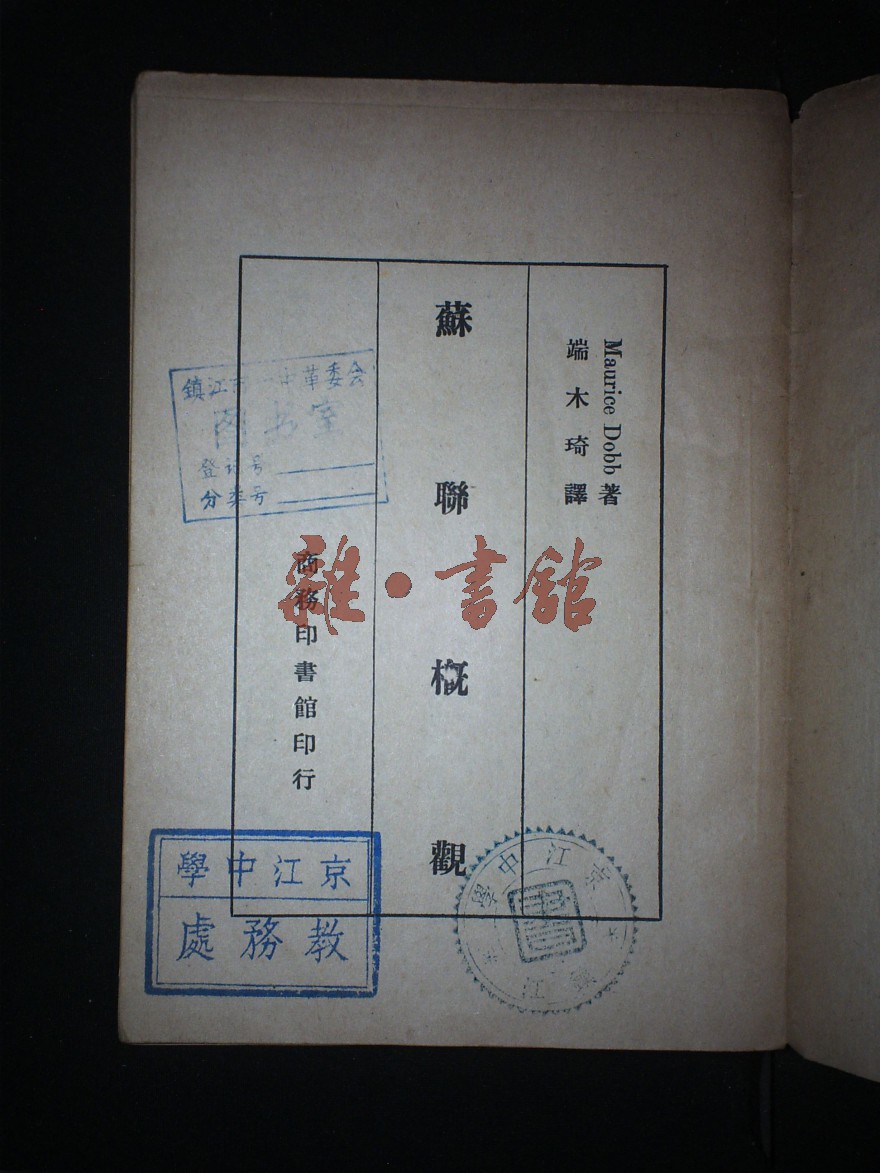 Maurice Dobb 著
端木琦譯
蘇聯概觀
商務印書館印行
鎮江市一中革委会
图书室
登记号
分类号
雜·書館
京江中學
教務處
京江中學
鎮江